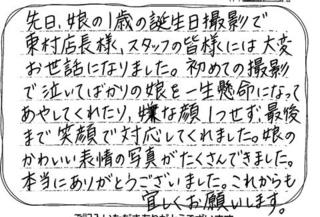 先日、娘の1歳の誕生日撮影で
東村店長様、スタッフの皆様には大変
お世話になりました。初めての撮影
で泣いてばかりの娘を一生懸命になって
あやしてくれたり、嫌な顔1つせず、最後
まで笑顔で対応してくれました。娘の
かわいい表情の写真がたくさんできました。
本当にありがとうございました。これからも
宜しくお願いします。